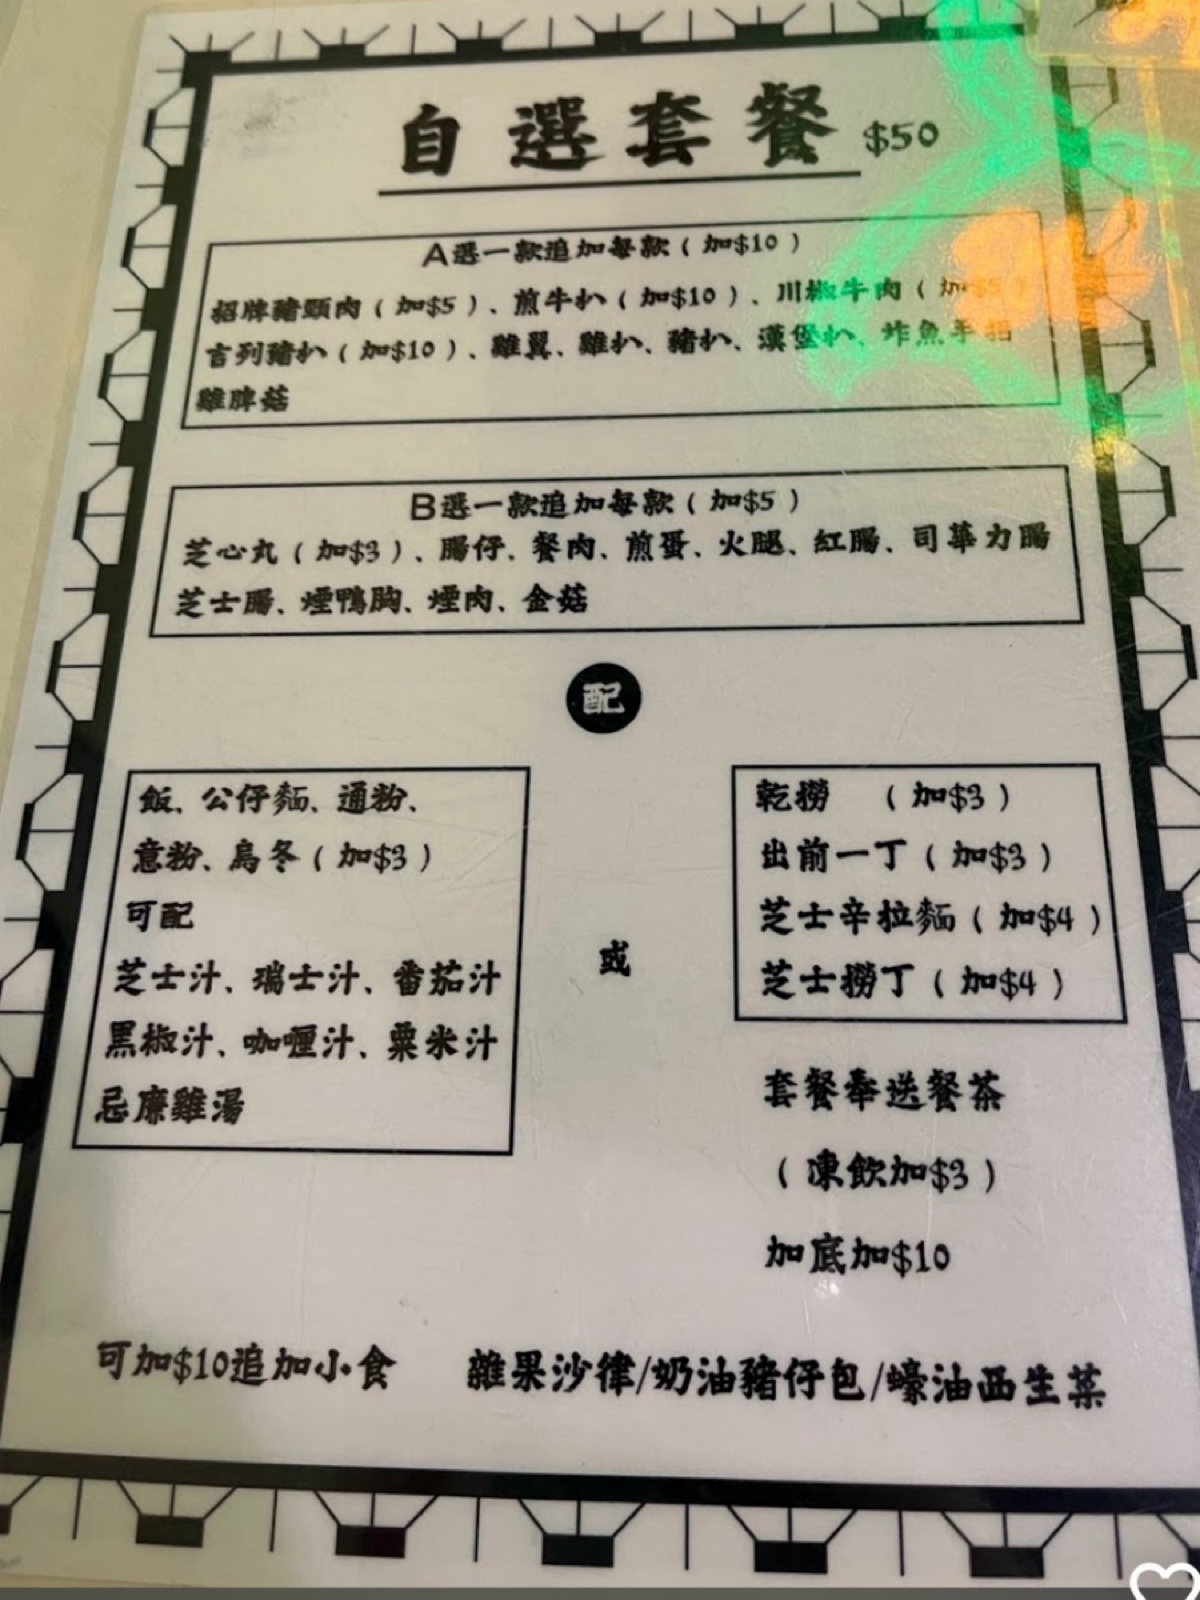 自選套餐 $50
A選一款追加每款（加$10）
招牌豬頸肉（加$5）、煎牛扒（加$10）、川椒牛肉（加$5）
吉列豬扒（加$10）、雞翼、雞扒、豬扒、漢堡扒、炸魚手指
雞脾菇
B選一款追加每款（加$5）
芝心丸（加$3）、腸仔、餐肉、煎蛋、火腿、紅腸、司華力腸
芝士腸、煙鴨胸、煙肉、金菇
配
飯、公仔麵、通粉、
意粉、烏冬（加$3）
可配
芝士汁、瑞士汁、番茄汁
黑椒汁、咖喱汁、粟米汁
忌廉雞湯
或
乾撈　（加$3）
出前一丁（加$3）
芝士辛拉麵（加$4）
芝士撈丁（加$4）
套餐奉送餐茶
（凍飲加$3）
加底加$10
可加$10追加小食　雜果沙律/奶油豬仔包/蠔油西生菜